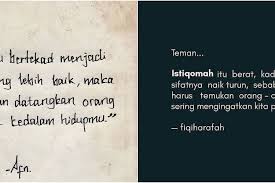 u bertekad menjadi
ng lebih baik, maka
an datangkan orang
k kedalam hidupmu."
-Afn.
Teman...
Istiqomah itu berat, kad
sifatnya naik turun, sebab
harus temukan orang - o
sering mengingatkan kita p
— fiqiharafah